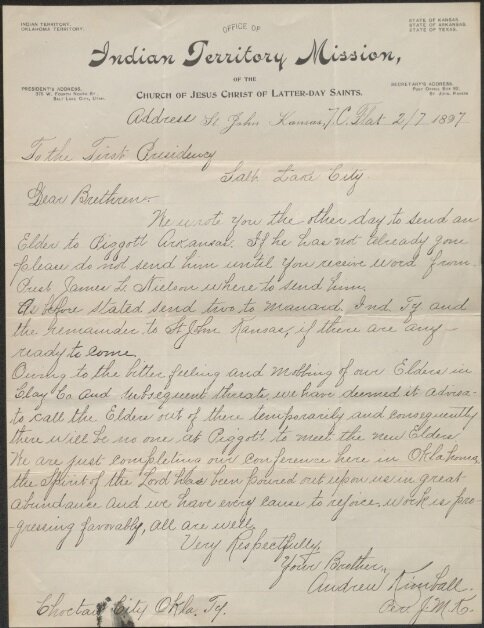 OFFICE OF
INDIAN TERRITORY.
OKLAHOMA TERRITORY.
STATE OF KANSAS.
STATE OF ARKANSAS.
STATE OF TEXAS.
Indian Territory Mission,
OF THE
CHURCH OF JESUS CHRIST OF LATTER-DAY SAINTS.
PRESIDENT'S ADDRESS.
375 W. FOURTH NORTH ST
SALT LAKE CITY, UTAH.
SECRETARY'S ADDRESS.
POST OFFICE BOX 92.
ST. JOHN, KANSAS
Address St John Kansas, 2/7 1897
To the First Presidency
Salt Lake City.
Dear Brethren:-
We wrote you the other day to send an
Elder to Piggott Arkansas. If he has not already gone
please do not send him until you receive word from
Prest James L. Nielson where to send him.
As before stated send two to Manard Ind. Ty and
the remainder to St John Kansas, if there are any
ready to come.
Owing to the bitter feeling and Mobbing of our Elders in
Clay Co and subsequent threats, we have deemed it advisa-
to call the Elders out of there temporarily and consequently
there will be no one at Piggott to meet the new Elders
We are just completing our conference here in Oklahoma,
the Spirit of the Lord has been poured out upon us in great
abundance and we have every cause to rejoice, work is pro-
-gressing favorably, all are well.
Very Respectfully,
Your Brother,
Andrew Kimball.
Per J.M.K.
Choctaw City Okla. Ty.